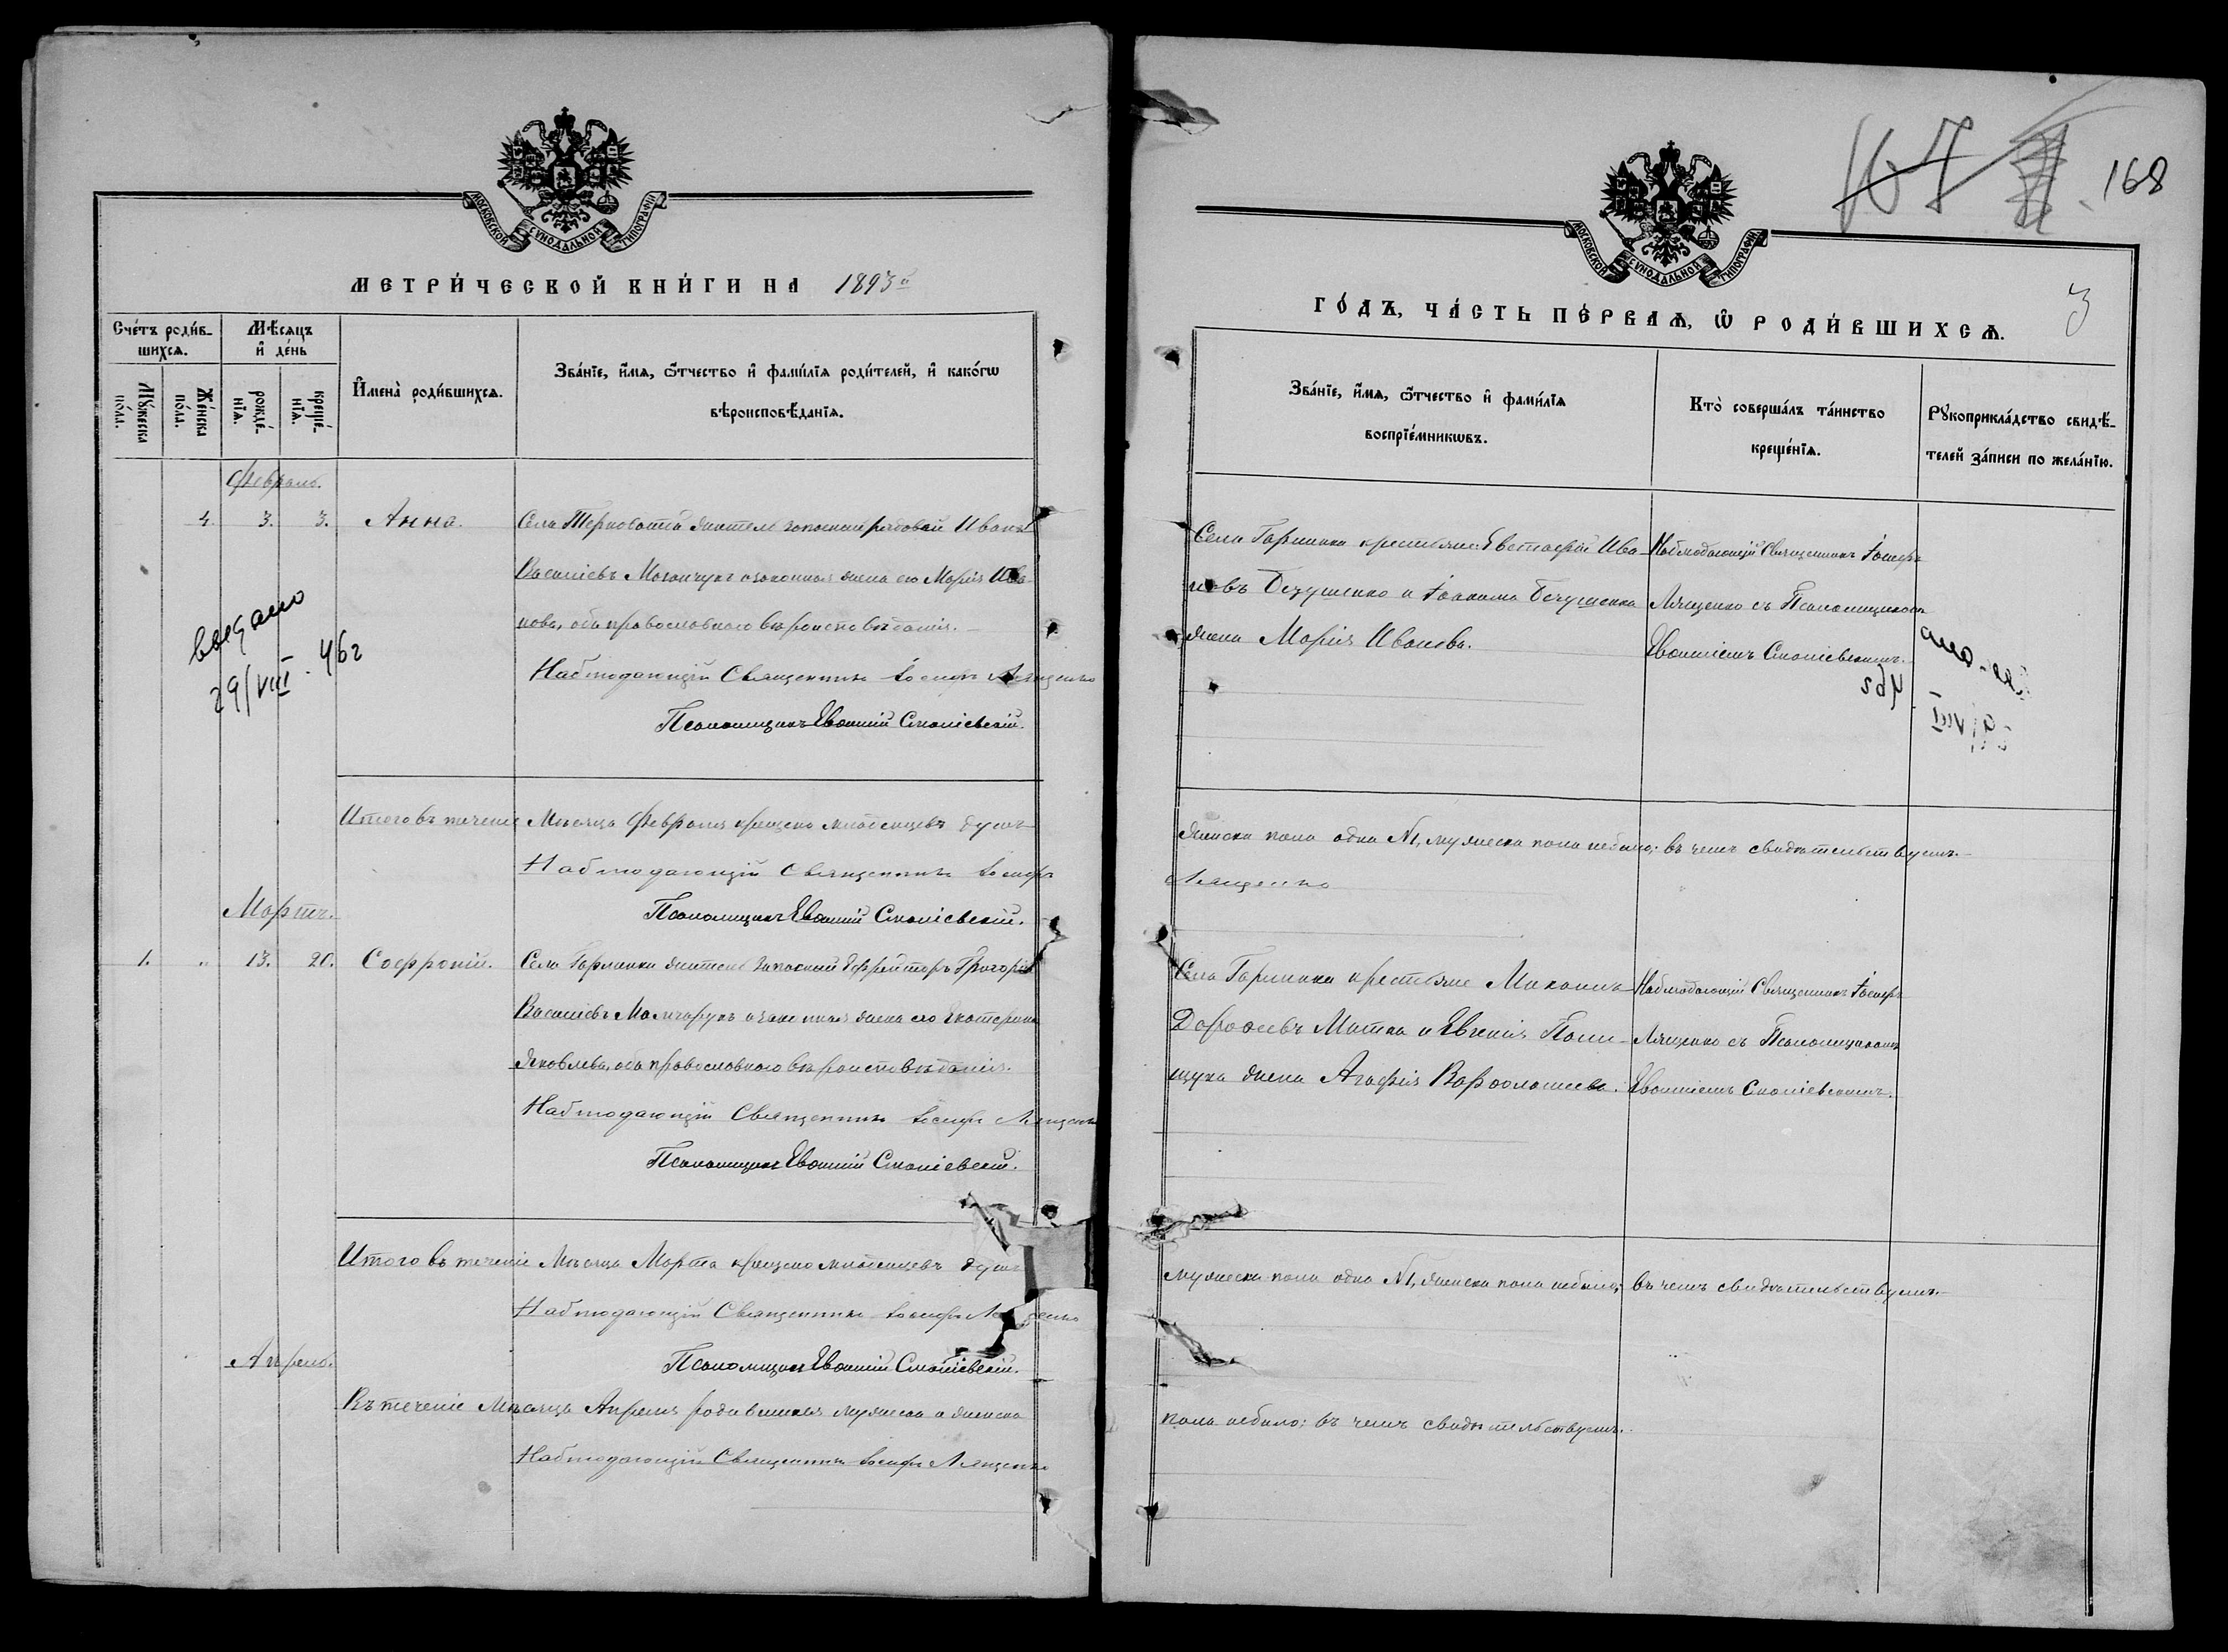 МОСКОВСКОЙ СѴНОДАЛЬНОЙ ТИПОГРАФІИ
МЕТРИ́ЧЕСКОЙ КНИ́ГИ НА 1893й
Сче́тъ роди́в-
шихсѧ.
Мѣ́сѧцъ
и҆ де́нь
Мꙋ́жеска
по́ла.
Же́нска
по́ла.
рожде́-
нїѧ.
креще́-
нїѧ.
И҆мена̀ роди́вшихсѧ.
Зва́нїе, и҆́мѧ, ѻ҆́тчество и҆ фами́лїѧ роди́телей, и҆ како́гѡ
вѣроисповѣ́данїѧ.
Февраль.
4. 3. 3. Анна. Села Терноватой житель запасный рядовой Иванъ
Василіевъ и законная жена его Марія Ива-
нова, оба православнаго вѣроисповѣданія.
Наблюдающій Священникъ Іосифъ Лященко
Псаломщикъ Евоимій Смоліевскій.
выдано
29/VIII 46г
Итого въ теченіе Мѣсяца Февраля крещено младенцевъ душъ
Наблюдающій Священникъ Іосифъ
Псаломщикъ Евоимій Смоліевскій.
Мартъ.
1. „ 13. 20. Софроній. Села Гармаки житель Запасный Ефрейторъ Григорій
Василіевъ и законная жена его Екатерина
Яковлева, оба православнаго вѣроисповѣданія.
Наблюдающій Священникъ Іосифъ Лященко
Псаломщикъ Евоимій Смоліевскій.
Итого въ теченіе Мѣсяца Марта крещено младенцевъ душъ
Наблюдающій Священникъ Іосифъ Лященко
Псаломщикъ Евоимій Смоліевскій.
Апрель.
Въ теченіе Мѣсяца Апреля родившихся мужеска и женска
Наблюдающій Священникъ Іосифъ Лященко
167 168
МОСКОВСКОЙ СѴНОДАЛЬНОЙ ТИПОГРАФІИ
3
ГО́ДЪ, ЧА́СТЬ ПЕ́РВАѦ, Ѡ҆ РОДИ́ВШИХСѦ.
Зва́нїе, и҆́мѧ, ѻ҆́тчество и҆ фами́лїѧ
воспрїе́мникѡвъ.
Кто̀ соверша́лъ та́инство
креще́нїѧ.
Рꙋкоприкла́дство свидѣ́-
телей за́писи по жела́нїю.
Села Гармаки крестьяне Евстафій Ива-
новъ Безушенко и Іоакима Безушенка
жена Марія Иванова.
Наблюдающій Священникъ Іосифъ
Лященко съ Псаломщикомъ
Евоиміемъ Смоліевскимъ.
женска пола одна №1, мужеска пола небыло; въ чемъ свидѣтельствуемъ.
Лященко
Села Гармаки крестьяне Михаилъ
Дороѳеевъ Митка и Евгенія Поли-
щука жена Агафія Варѳоломеева.
Наблюдающій Священникъ Іосифъ
Лященко съ Псаломщикомъ
Евоиміемъ Смоліевскимъ.
мужеска пола одна №1, женска пола небыло; въ чемъ свидѣтельствуемъ.
пола небыло: въ чемъ свидѣтельствуемъ.